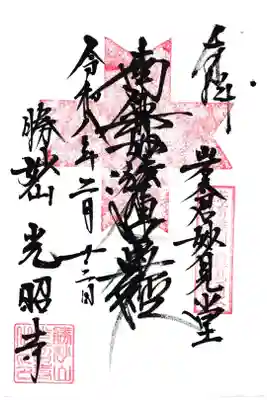 奉拝
岩君妙見堂
南無妙法蓮華経
令和八年二月十二日
勝光山 光昭寺